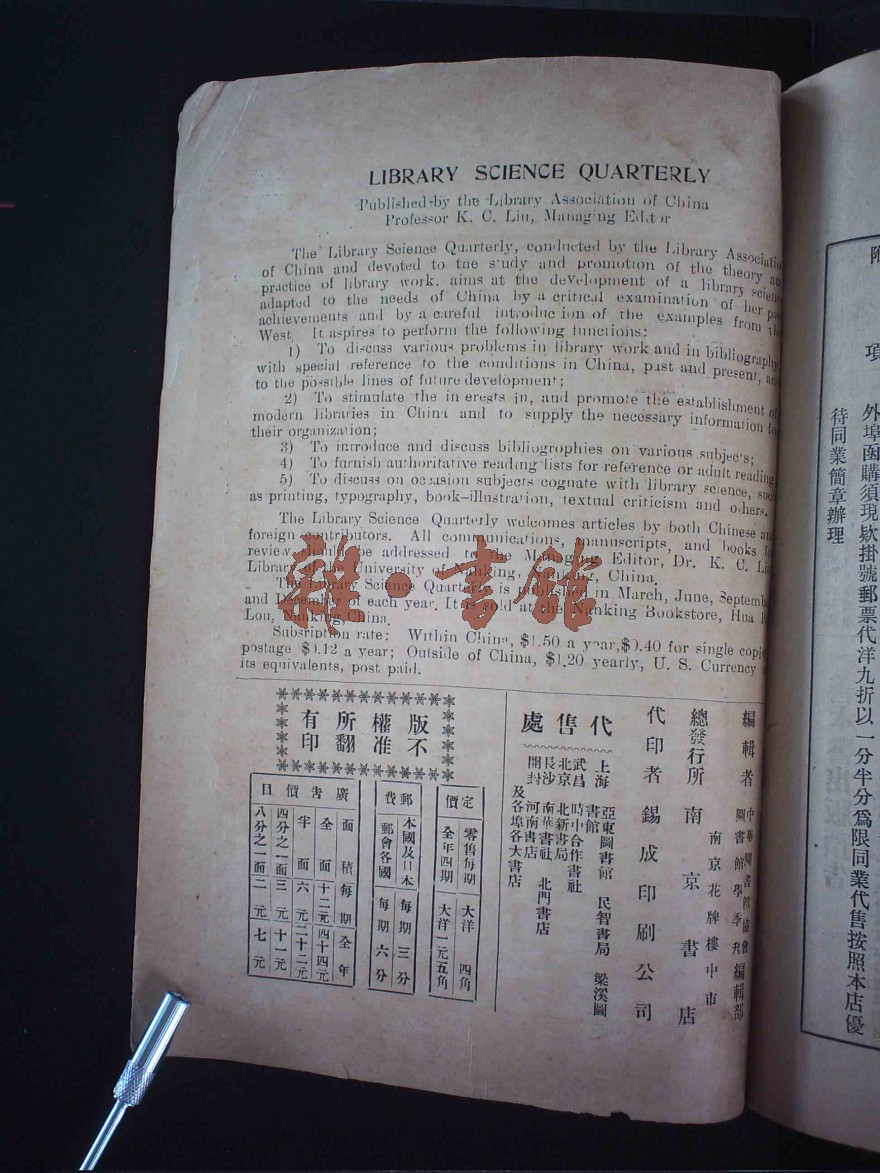 LIBRARY SCIENCE QUARTERLY
Published by the Library Association of China
Professor K. C. Liu, Managing Editor
The Library Science Quarterly, conducted by the Library Associatio
of China and devoted to tne s'udy and promotion of the theory an
practice of library work. aims at the development of a library science
adapted to the needs of China by a critical examination of her pas
achievements and by a careful introduc ion of the examples from the
West. It aspires to perform the following functions:
1) To discuss various problems in library work and in bibliography
with special reference to the conditions in China, past and present, and
to the possible lines of future development;
2) To stimulate the in erests in, and promote the establishment of
modern libraries in China and to supply the necessary information for
their organization;
3) To introduce and discuss bibliogrophies on various subjects;
4) To furnish authoritative reading lists for reference or adult reading;
5) To discuss on occasion subjects cognate with library science, such
as printing, typography, book-illustration, textual criticism and others.
The Library Science Quarterly welcomes articles by both Chinese and
foreign contributors. All communications, manuscripts, and books for
review should be addressed to the Managing Editor, Dr. K. C. Liu
Library of the University of Nanking, Nanking, China.
The Library Science Quarterly is published in March, June, Septembe
and December of each year. It is sold at the Nanking Bookstore, Hua P
Lou, Nanking, China.
Subsription rate: Within China, $1.50 a year, $0.40 for single copie
postage $0.12 a year; Outside of China, $1.20 yearly, U. S. Currency
its equivalents, post paid.
雜·書館
編輯者 中華圖書館協會
圖書館學季刊編輯部
總發行所 南京書店
南京花牌樓中市
代印者 錫成印刷公司
代售處
上海 亞東圖書館 民智書局 梁溪圖
書館
武昌 時中合作書社
北京 北新書局
長沙 南華書社 北門書店
開封 河南書店
及各埠各大書店
版權所有
不准翻印
定價
零售每期 大洋 四角
全年四期 大洋一元五角
郵費
本國及日本 每期三分
郵會各國 每期六分
廣告價目
面積 每期 全年
全面 十二元 四十四元
半面 六元 二十二元
四分之一面 三元 十一元
八分之一面 二元 七元
附
項
外埠函購須現欵掛號郵票代洋九折以一分半分為限同業代售按照本店優
待同業簡章辦理